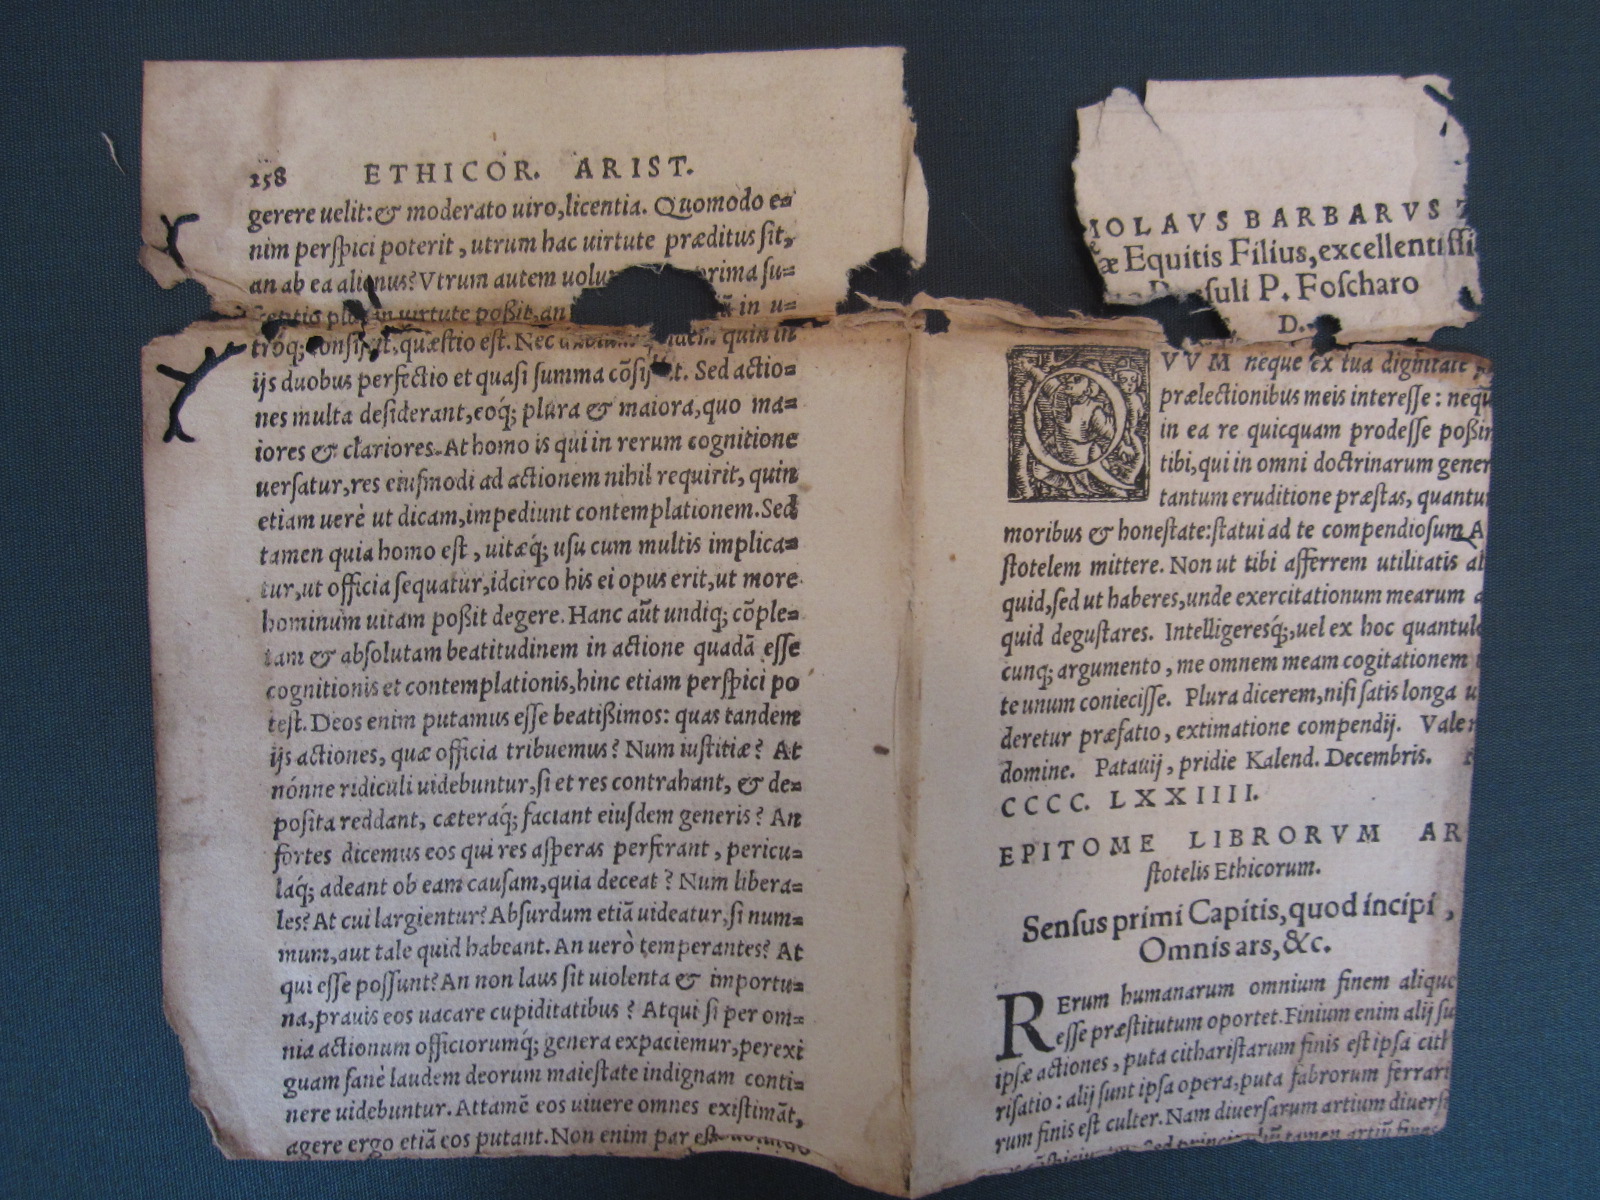 258 ETHICOR. ARIST.
gerere uelit:& moderato uiro,licentia. Quomodo e=
nim perſpici poterit, utrum hac uirtute præditus ſit,
an ab ea alienus? Vtrum autem prima ſu=
in uirtute poßit,an in u=
troq; conſiſtit,quæſtio eſt. Nec quin in
ijs duobus perfectio et quaſi ſumma Sed actio=
nes multa deſiderant,eoq́; plura & maiora,quo ma=
iores & clariores. At homo is qui in rerum cognitione
uerſatur,res eiuſmodi ad actionem nihil requirit, quin
etiam uerè ut dicam,impediunt contemplationem. Sed
tamen quia homo eſt, uitæq́; uſu cum multis implica=
tur,ut officia ſequatur,idcirco his ei opus erit,ut more
hominum uitam poßit degere. Hanc aūt undiq; cōple=
tam & abſolutam beatitudinem in actione quadā eſſe
cognitionis et contemplationis,hinc etiam perſpici po
teſt. Deos enim putamus eſſe beatißimos: quas tandem
ijs actiones, quæ officia tribuemus? Num iuſtitiæ? At
nónne ridiculi uidebuntur,ſi et res contrahant, & de=
poſita reddant, cæteraq́; faciant eiuſdem generis? An
fortes dicemus eos qui res aſperas perferant, pericu=
laq́; adeant ob eam cauſam,quia deceat? Num libera=
les? At cui largientur? Abſurdum etiā uideatur,ſi num=
mum,aut tale quid habeant. An uerò temperantes? At
qui eſſe poſſunt? An non laus ſit uiolenta & importu=
na,prauis eos uacare cupiditatibus? Atqui ſi per om=
nia actionum officiorumq́; genera expaciemur,perexi
guam ſanè laudem deorum maieſtate indignam conti=
nere uidebuntur. Attamē eos uiuere omnes exiſtimāt,
agere ergo etiā eos putant. Non enim par eſt
IOLAVS BARBARVS
æ Equitis Filius,excellentiſſi
ſuli P. Foſcharo
D.
QVVM neque ex tua dignitate
prælectionibus meis intereſſe: nequ
in ea re quicquam prodeſſe poßin
tibi,qui in omni doctrinarum gener
tantum eruditione præſtas, quantu
moribus & honeſtate:ſtatui ad te compendioſum A
ſtotelem mittere. Non ut tibi afferrem utilitatis al
quid,ſed ut haberes,unde exercitationum mearum a
quid deguſtares. Intelligeresq́;,uel ex hoc quantulo
cunq; argumento, me omnem meam cogitationem
te unum conieciſſe. Plura dicerem,niſi ſatis longa u
deretur præfatio, extimatione compendij. Vale
domine. Patauij, pridie Kalend. Decembris.
CCCC. LXXIIII.
EPITOME LIBRORVM AR
ſtotelis Ethicorum.
Senſus primi Capitis,quod incipi,
Omnis ars, &c.
RErum humanarum omnium finem aliquo
eſſe præſtitutum oportet. Finium enim alij ſu
ipſæ actiones, puta cithariſtarum finis eſt ipſa cith
riſatio: alij ſunt ipſa opera,puta fabrorum ferrari
rum finis eſt culter. Nam diuerſarum artium diuerſi
tamen artiū fines